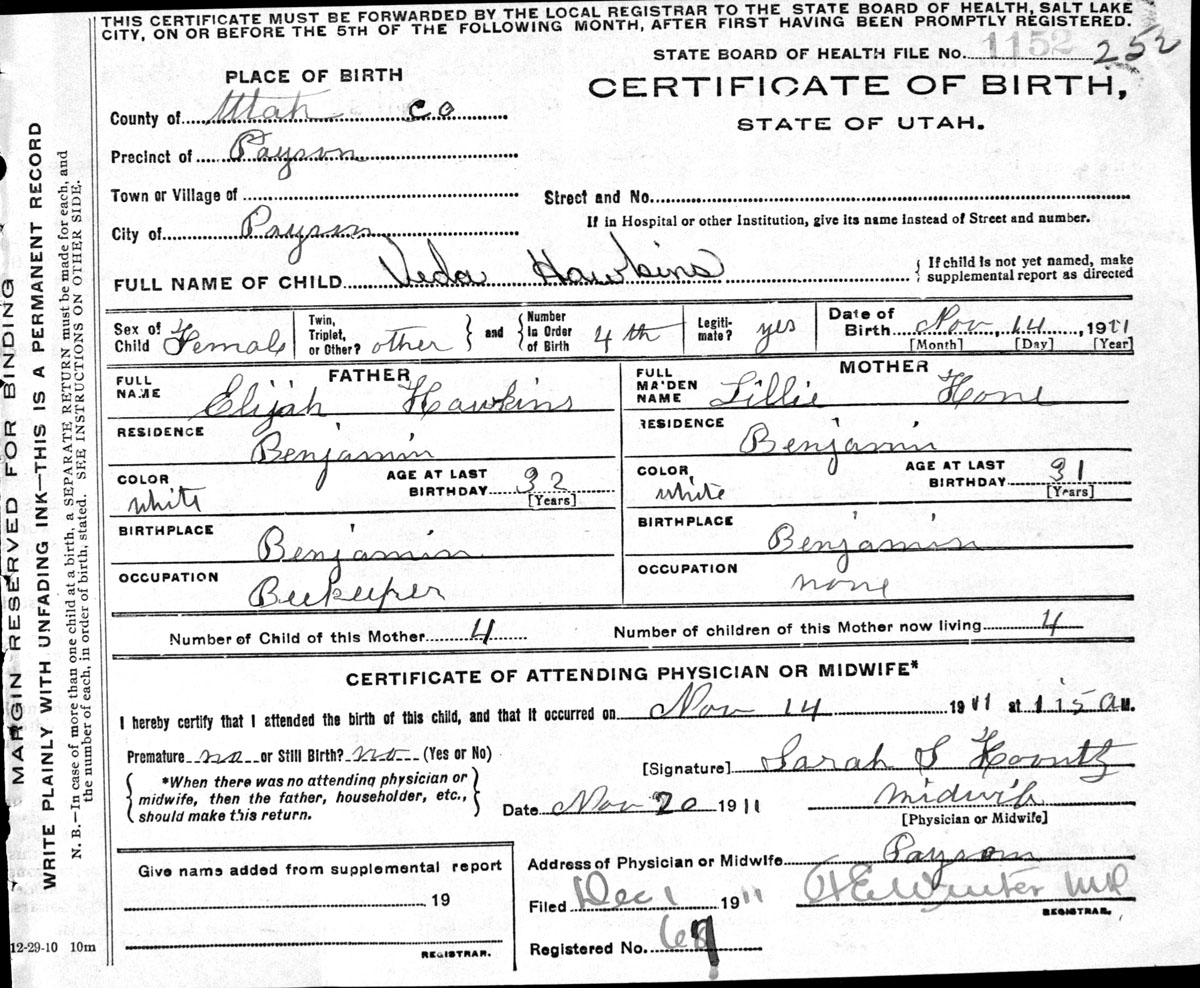 THIS CERTIFICATE MUST BE FORWARDED BY THE LOCAL REGISTRAR TO THE STATE BOARD OF HEALTH, SALT LAKE
CITY, ON OR BEFORE THE 5TH OF THE FOLLOWING MONTH, AFTER FIRST HAVING BEEN PROMPTLY REGISTERED.
STATE BOARD OF HEALTH FILE No. 1152 252
PLACE OF BIRTH
CERTIFICATE OF BIRTH,
STATE OF UTAH.
County of Utah Co
Precinct of Payson
Town or Village of
Street and No.
If in Hospital or other Institution, give its name instead of Street and number.
City of Payson
FULL NAME OF CHILD Veda Hawkins
{ If child is not yet named, make
supplemental report as directed
Sex of Child Female
Twin, Triplet, or Other? other
and
Number In Order of Birth 4th
Legitimate? yes
Date of Birth Nov, 14, 1911
[Month] [Day] [Year]
FATHER
FULL NAME Elijah Hawkins
RESIDENCE Benjamin
COLOR white
AGE AT LAST BIRTHDAY 32
[Years]
BIRTHPLACE Benjamin
OCCUPATION Beekeeper
MOTHER
FULL MAIDEN NAME Lillie Hone
RESIDENCE Benjamin
COLOR white
AGE AT LAST BIRTHDAY 31
[Years]
BIRTHPLACE Benjamin
OCCUPATION none
Number of Child of this Mother 4
Number of children of this Mother now living 4
CERTIFICATE OF ATTENDING PHYSICIAN OR MIDWIFE*
I hereby certify that I attended the birth of this child, and that it occurred on Nov 14 1911 at 1 15 A M.
Premature no or Still Birth? no (Yes or No)
*When there was no attending physician or
midwife, then the father, householder, etc.,
should make this return.
[Signature] Sarah S Koontz
Date Nov 20 1911
midwife
[Physician or Midwife]
Give name added from supplemental report
19
REGISTRAR.
Address of Physician or Midwife Payson
Filed Dec 1 1911
REGISTRAR.
Registered No.
12-29-10 10m
MARGIN RESERVED FOR BINDING
WRITE PLAINLY WITH UNFADING INK—THIS IS A PERMANENT RECORD
N. B.—In case of more than one child at a birth, a SEPARATE RETURN must be made for each, and
the number of each, in order of birth, stated. SEE INSTRUCTIONS ON OTHER SIDE.